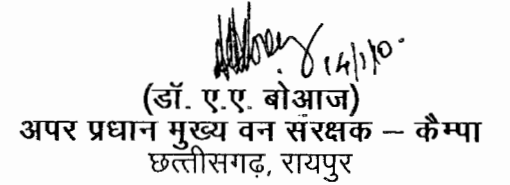 14/1/10.
(डॉ. ए.ए. बोआज)
अपर प्रधान मुख्य वन संरक्षक – कैम्पा
छत्तीसगढ़, रायपुर